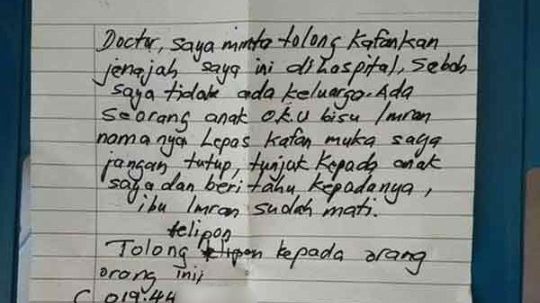 Doctur, saya minta tolong Kafankan
jenajah saya ini dihospital, Sebab
saya tidak ada keluarga. Ada
Seorang anak OKU bisu Imran
namanya Lepas Kafan muka saya
jangan tutup, tunjuk Kepada anak
saya dan beri tahu Kepadanya,
ibu Imran Sudah mati.
telipon
Tolong kepada orang
orang inij
C 019:44